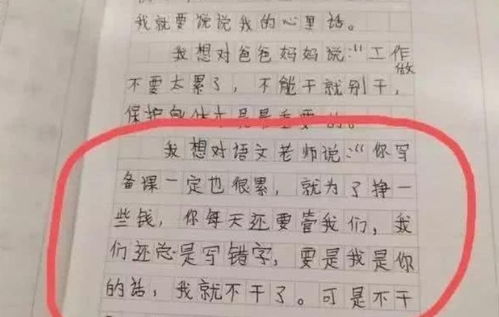 我就要说说我的心里话。
我想对爸爸妈妈说:“工作做
不要太累了,不能干就别干,
保护身体才是最重要的。
我想对语文老师说:“你写
备课一定也很累,就为了挣一
些钱,你每天还要管我们,我
们还总是写错字,要是我是你
的话,我就不干了。可是不干